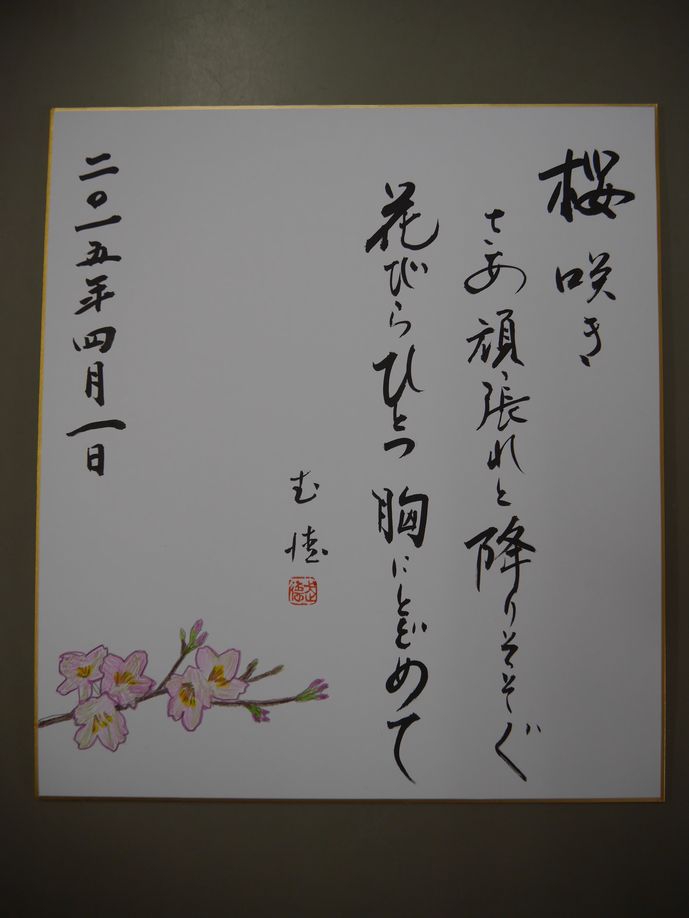 桜 咲き
さあ 頑張れと 降りそそぐ
花びらひとつ 胸にとどめて
武徳
二〇一五年四月一日